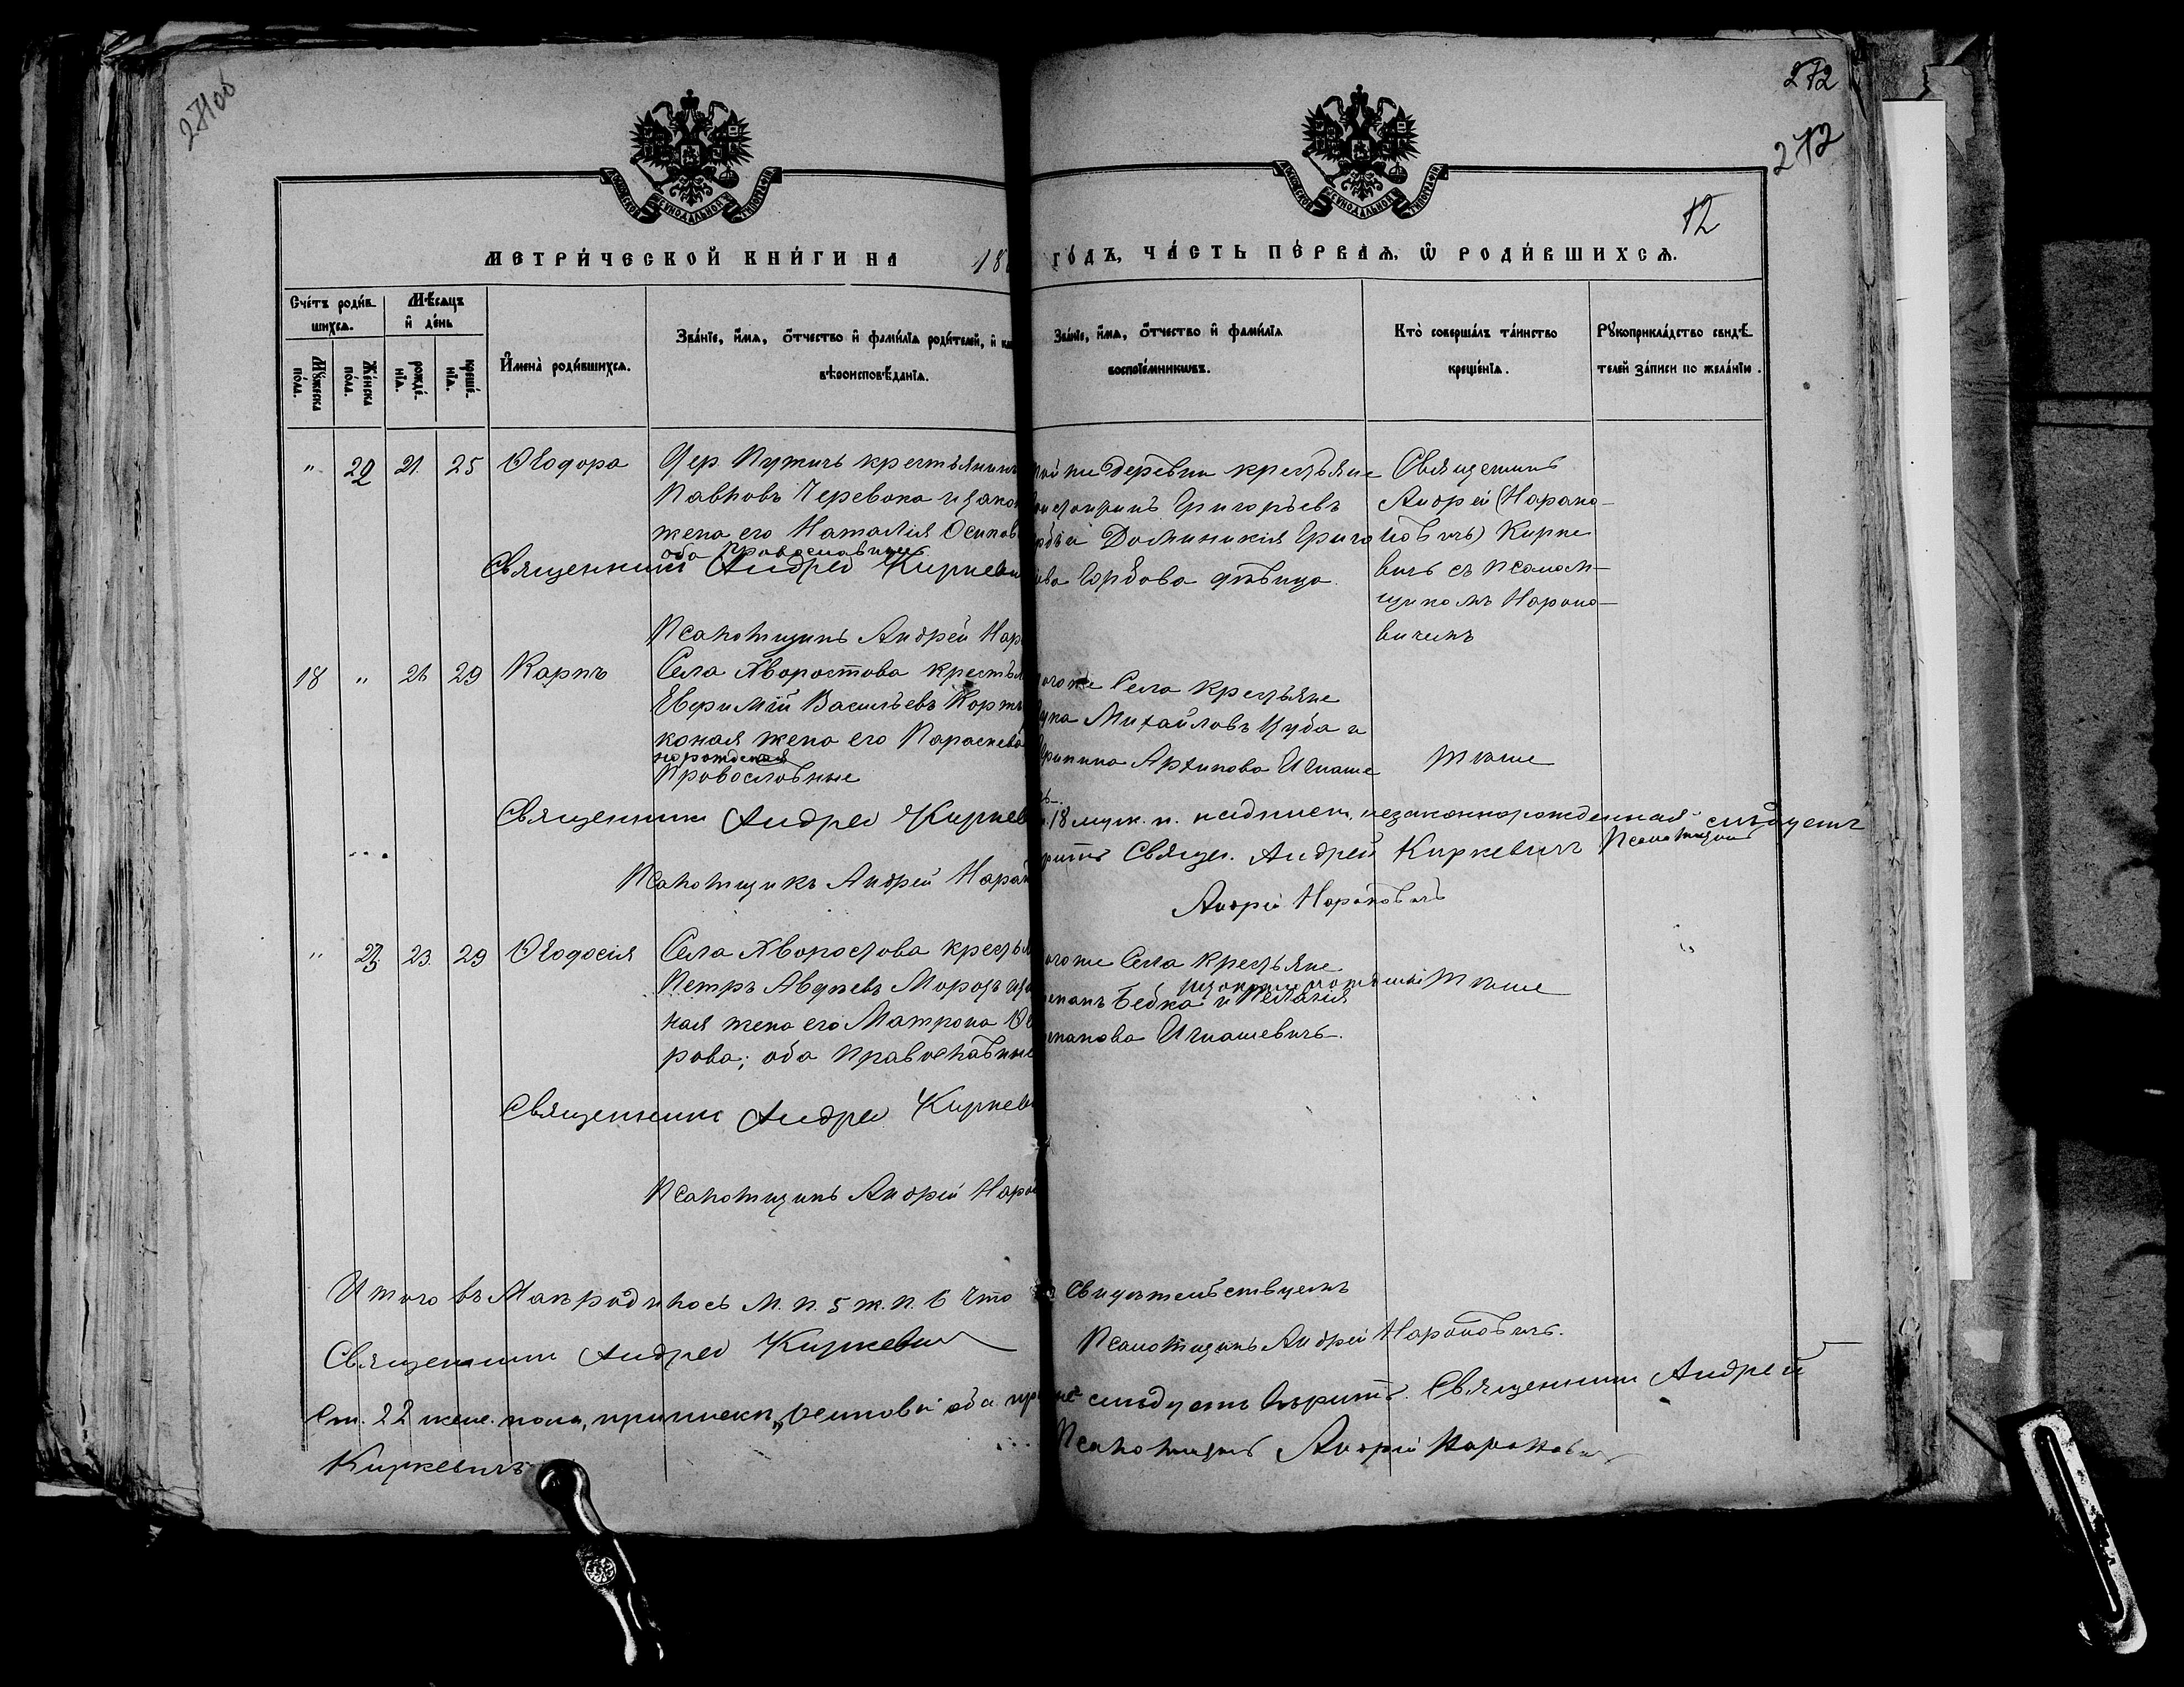 272
272
12
МЕТРИЧЕСКОЙ КНИГИ НА 18
ГОДЪ, ЧАСТЬ ПЕРВАЯ, Ѡ РОДИВШИХСЯ.
Счетъ родившихся.
Мѣсяцъ и день
Мужеска пола.
Женска пола.
рожденія.
крещенія.
Имена родившихся.
Званіе, имя, отчество и фамилія родителей, и
вѣроисповѣданія.
Званіе, имя, отчество и фамилія
воспріемниковъ.
Кто совершалъ таинство
крещенія.
Рукоприкладство свидѣ
телей записи по желанію.
" 22 21. 25 Ѳеодора
Дер. Пужичь крестьянинъ
Павловъ Черевака и закон
жена его Наталія Осипов
оба Православные
Священникъ Андрей Киркевич
Псаломщикъ Андрей Нар
той же деревни крестьяне
Григорьевъ
Доминикія Григо
ева Горбова дѣвица.
Священникъ
Андрей (Нароно
вичъ) Кирке
вичъ съ псалом-
щикомъ Нароно-
вичемъ
18 " 21 29 Карпъ
Села Хворостова крестья
Евфимій Васильевъ Корж
конная жена его Параскева
Православные
Священникъ Андрей Киркев
Псаломщикъ Андрей Нарон
того же Села крестьяне
Лука Михайловъ Цуба и
Архипова Игнаше
Тѣже
18 муж. п. надписи, незаконнорожденная слѣдуетъ
Свящ. Андрей Киркевичъ Псаломщикъ
Андрей Нароновичъ
" 23 23. 29 Ѳеодосія
Села Хворостова крестья
Петръ Авдѣевъ Морозъ и за
ная жена его Матрона Ѳе
рова; оба православные
Священникъ Андрей Киркев
Псаломщикъ Андрей Нарон
того же Села крестьяне
Бебка и Пелагія
Степанова Игнашевичъ.
Тѣже
Итого въ Маѣ родилось м. п. 5 ж. п. 6 Что
Свидѣтельствуемъ
Священникъ Андрей Киркевич
Псаломщикъ Андрей Нароновичъ.
Ст. 22 женс. пола, приписки, Осиповой оба пр
слѣдуетъ вѣрить. Священникъ Андрей
Киркевичъ
Псаломщикъ Андрей Наронович